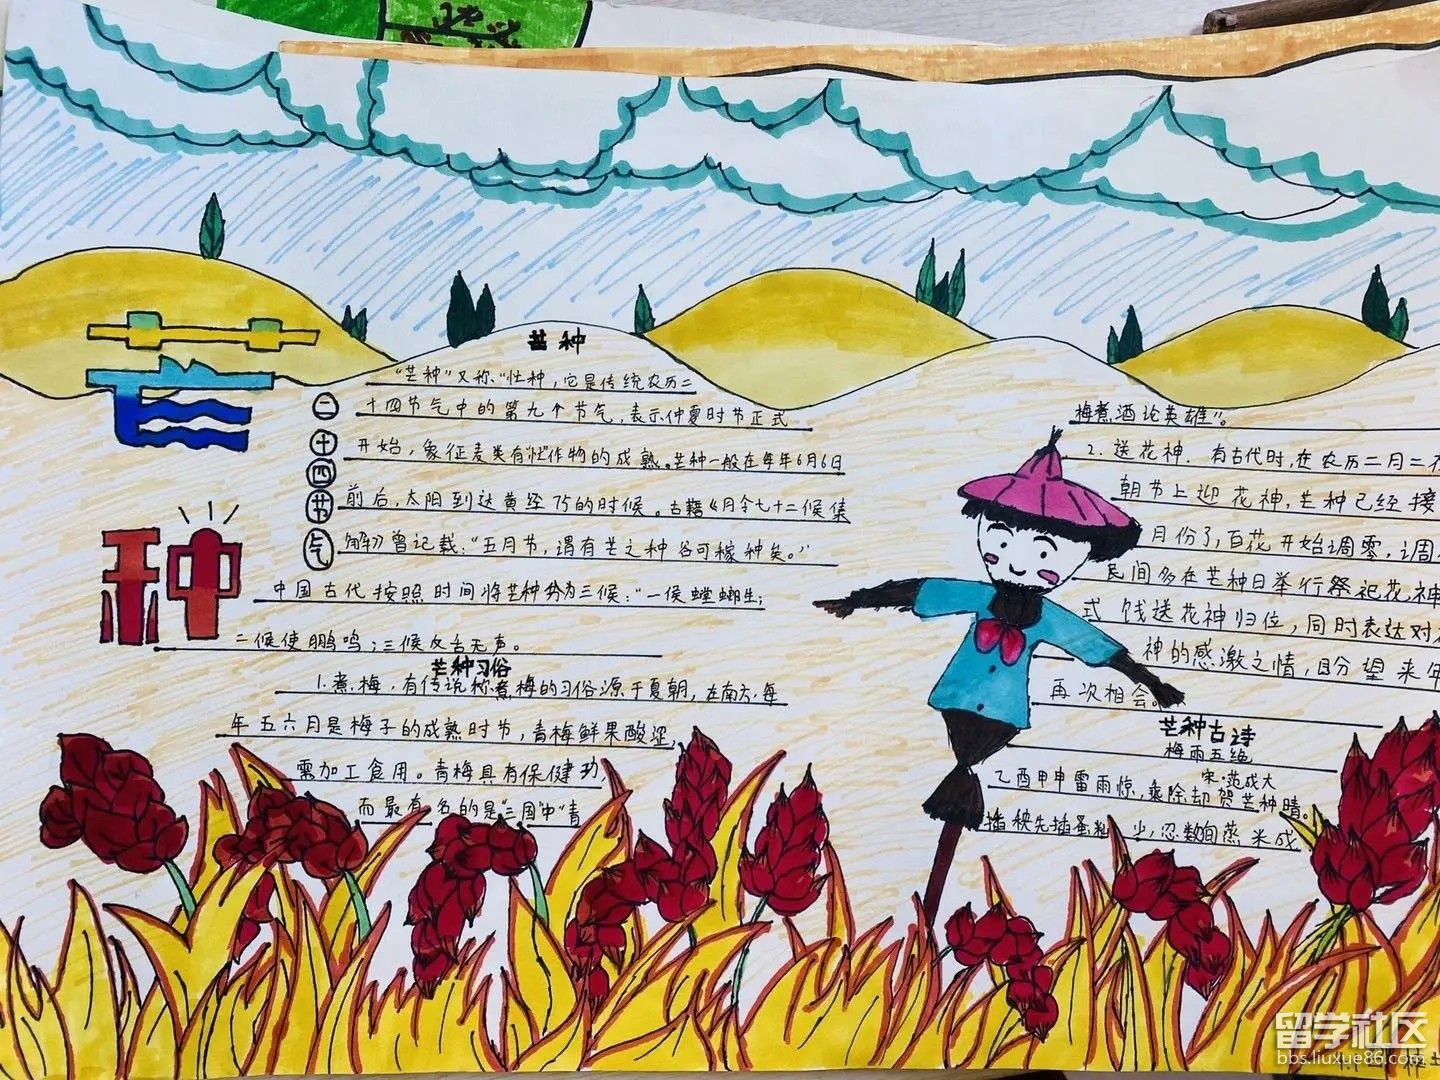 芒种
二十四节气
芒种
“芒种”又称“忙种，它是传统农历二
十四节气中的第九个节气，表示仲夏时节正式
开始，象征麦类有忙作物的成熟。芒种一般在每年6月6日
前后，太阳到达黄经75的时候。古籍《月令七十二候集
解》曾记载：“五月节，谓有芒之种谷可稼种矣。”
中国古代按照时间将芒种分为三候：“一候螳螂生；
二候使鹏鸣；三候反舌无声。
芒种习俗
1.煮梅，有传说煮梅的习俗源于夏朝，在南方，每
年五六月是梅子的成熟时节，青梅鲜果酸涩，
需加工食用。青梅具有保健功，
而最有名的是“三国”中“青
梅煮酒论英雄”。
2.送花神．有古代时，在农历二月二
朝节上迎花神，芒种已经接
月份了，百花开始调零，调
民间多在芒种日举行祭祀花神
式饯送花神归位，同时表达对
神的感激之情，盼望来年
再次相会。
芒种古诗
梅雨五绝
宋·范成大
乙酉甲申雷雨惊，乘除却贺芒种晴。
插秧先插蚤籼少，忍数旬蒸米成
留学社区
bbs.liuxue86.com